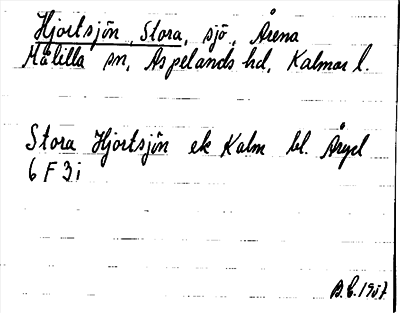 Hjortsjön, Stora, sjö, Årena
Målilla sn, Aspelands hd, Kalmar l.
Stora Hjortsjön ek Kalm bl.
6 F 3i
B.E. 1957